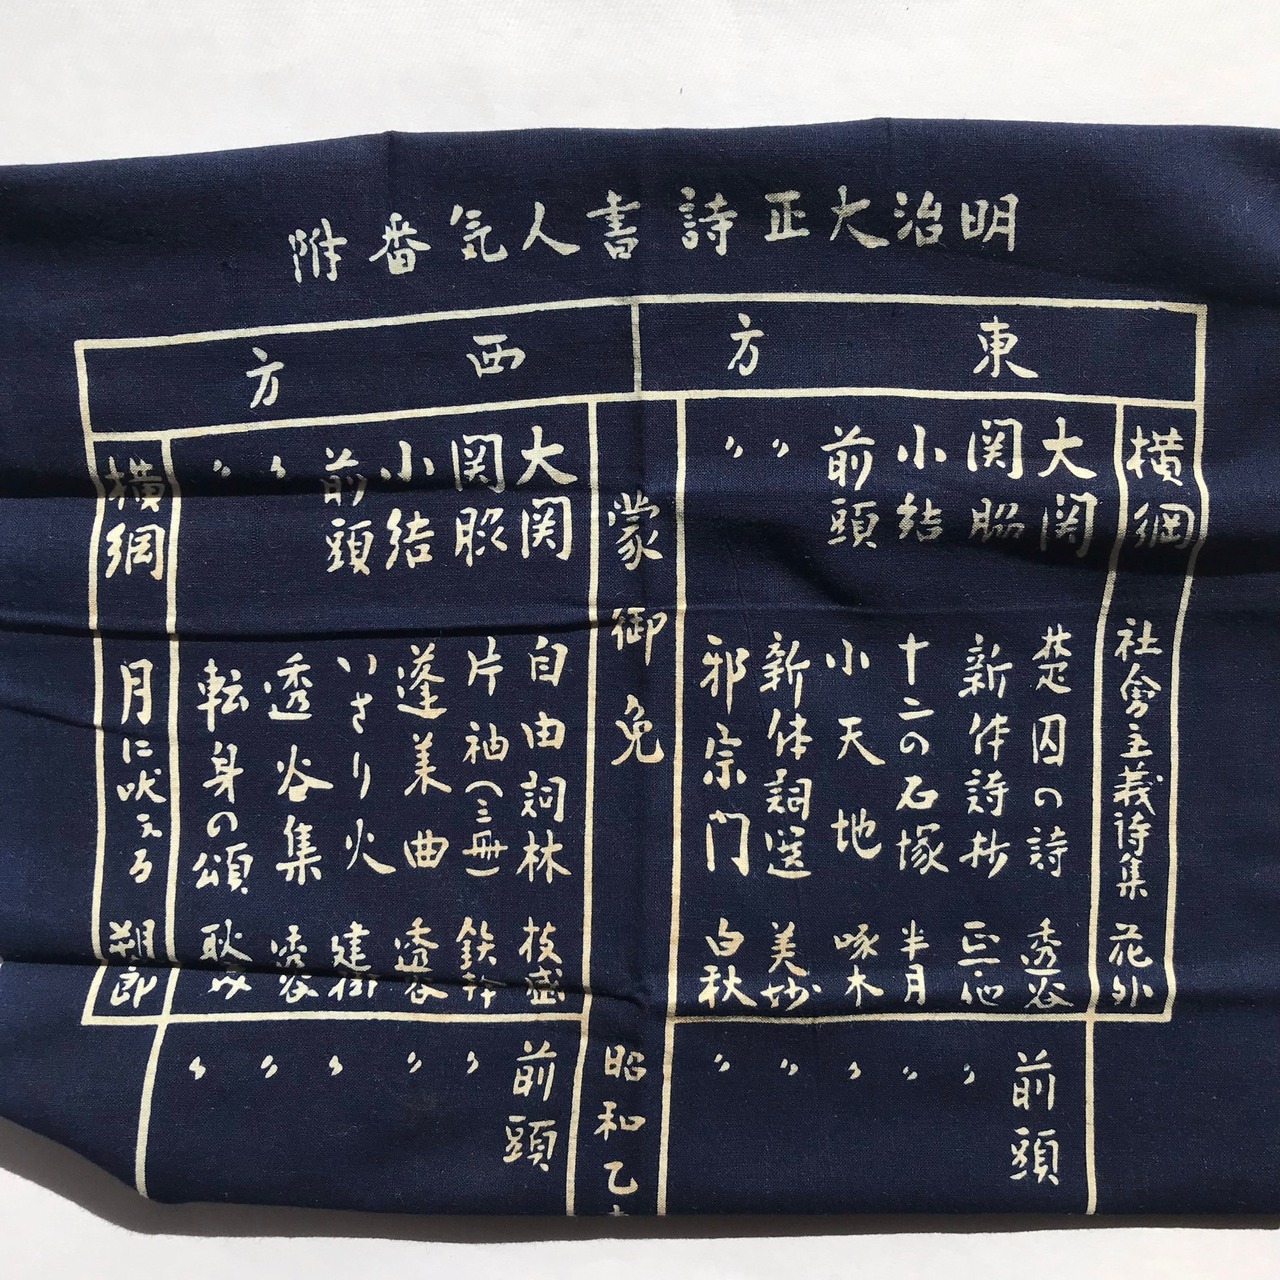 明治大正詩書人気番附
東方
横綱 社會主義詩集 花外
大関 楚囚の詩 透谷
関脇 新体詩抄 正一他
小結 十二の石塚 半月
前頭 小天地 啄木
〃 新体詞選 美妙
〃 邪宗門 白秋
前頭
〃
〃
〃
〃
〃
蒙御免
昭和乙
西方
大関 自由詞林 枝盛
関脇 片袖(三冊) 鉄幹
小結 蓬莱曲 透谷
前頭 いさり火 建樹
〃 透谷集 透谷
〃 転身の頌 耿之介
横綱 月に吠える 朔郎
前頭
〃
〃
〃
〃
〃